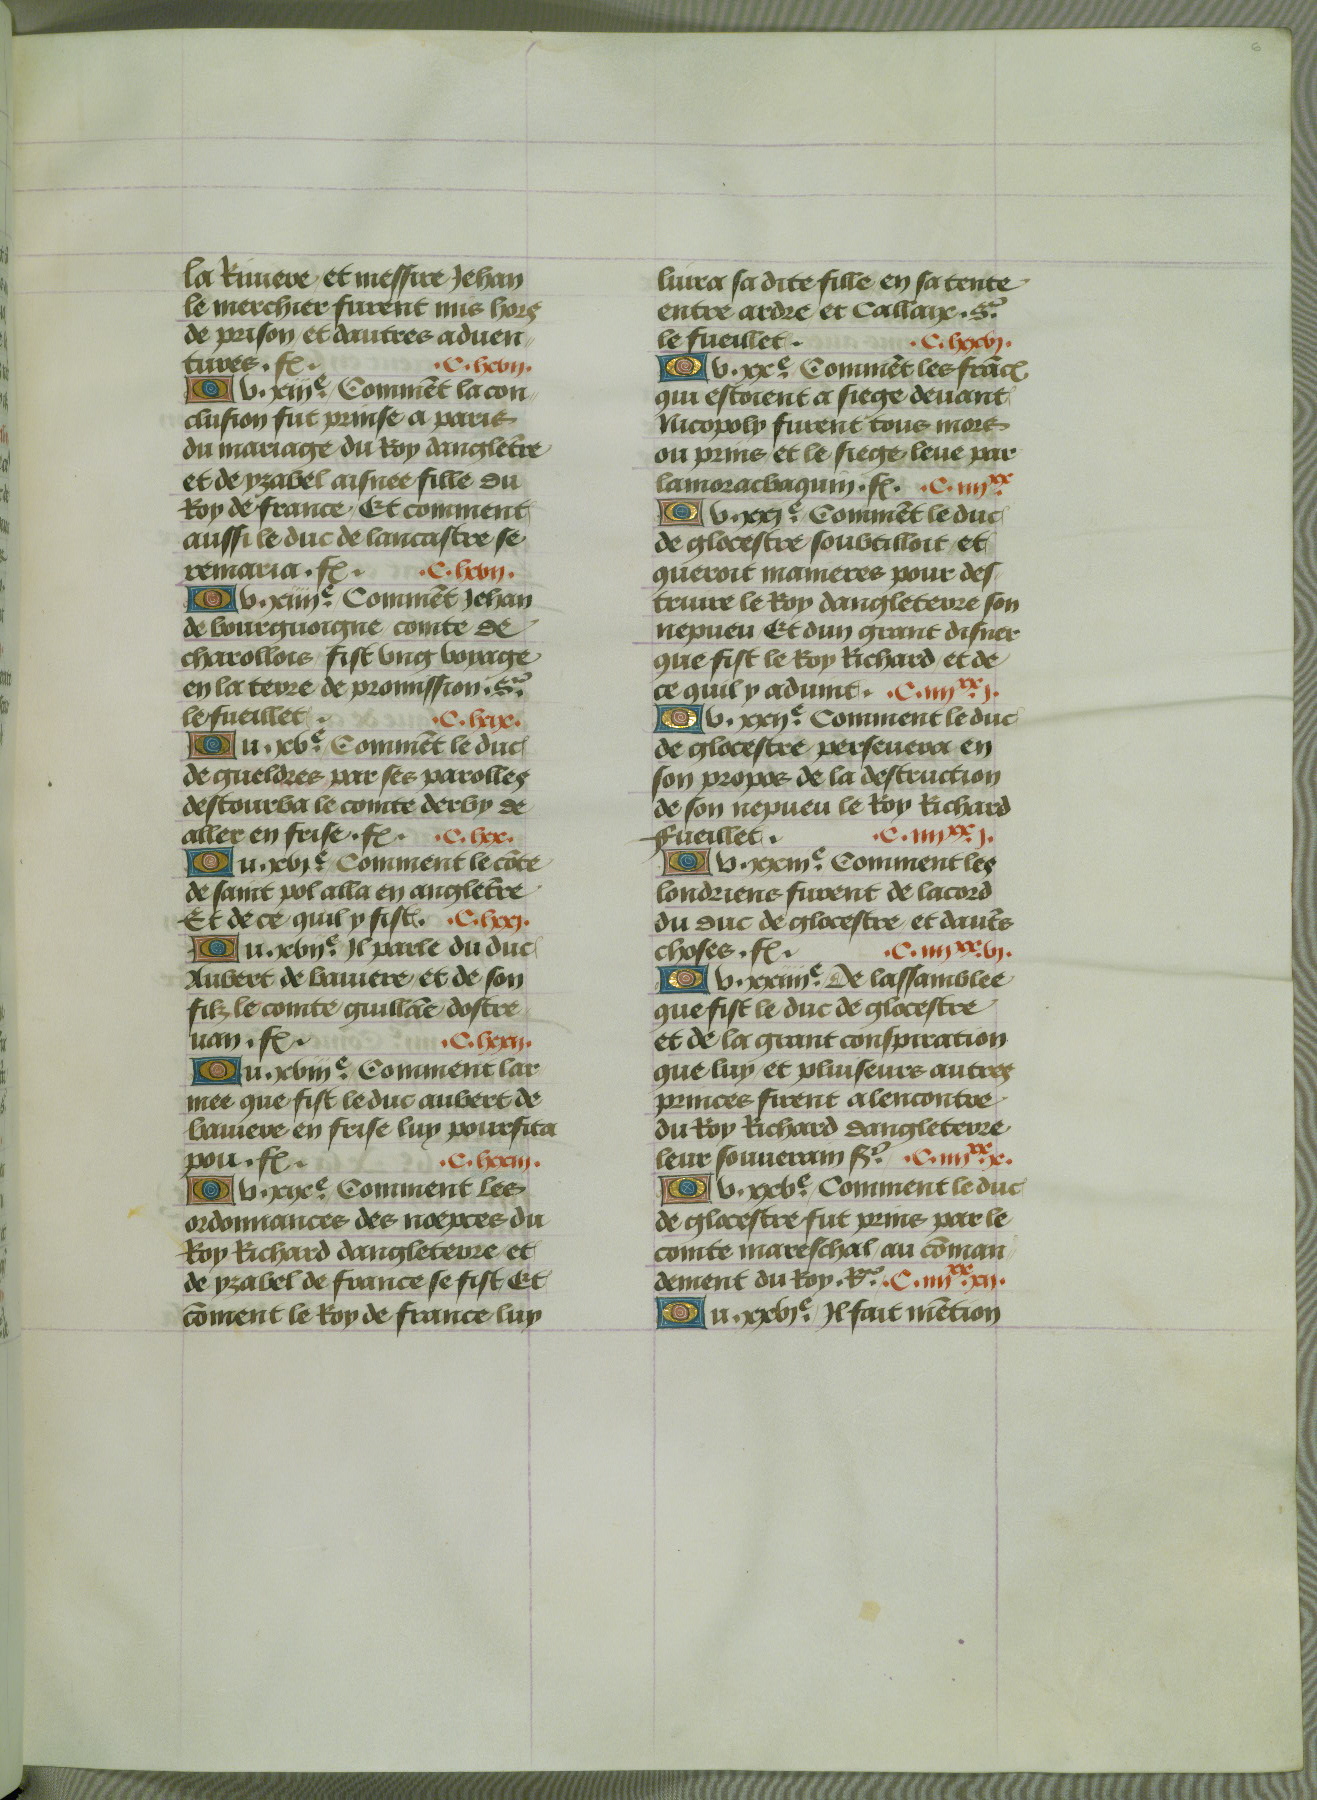 la Riuiere et messire Jehan
le merchier furent mis hors
de prison et dautres aduen
tures . fᵒ . .C. lxvij.
Ou . xiijᵉ. Commẽt la con
clusion fut prinse a paris
du mariage du Roy dangletẽre
et de yzabel aisnee fille du
Roy de france Et comment
aussi le duc de lancastre se
remaria . fᵒ . .C. lxvij.
Ou . xiiijᵉ. Commẽt Jehan
de bourguoigne comte de
charollois fist vng voyage
en la terre de promission . Sʳ
le fueillet . .C. lxix.
Ou . xvᵉ. Commẽt le duc
de gueldres par ses parolles
destourba le comte derby de
aller en frise . fᵒ . .C. lxx.
Ou . xvjᵉ. Comment le cõte
de saint pol alla en angletẽre
Et de ce quil y fist . .C. lxxj.
Ou . xvijᵉ. Il parle du duc
Aubert de bauiere et de son
filz le comte guillãe dostre
uan . fᵒ . .C. lxxij.
Ou . xviijᵉ. Comment lar
mee que fist le duc aubert de
bauiere en frise luy pourfita
pou . fᵒ . .C. lxxiij.
Ou . xixᵉ. Comment les
ordonnances des noepces du
Roy Richard dangleterre et
de yzabel de france se fist Et
cõment le Roy de france luy
liura sa dite fille en sa tente
entre ardre et Callaix . Sʳ
le fueillet . .C. lxxvj.
Ou . xxᵉ. Commẽt les frãcs
qui estoient a siege deuant
Nicopoly furent tous mors
ou prins et le siege leue par
lamorabaquin . fᵒ . .C. iiijˣˣ
Ou . xxjᵉ. Commẽt le duc
de glocestre soubtilloit et
queroit manieres pour des
truire le Roy dangleterre son
nepueu Et dun grant disner
que fist le Roy Richard et de
ce quil y aduint . .C. iiijˣˣ j.
Ou . xxijᵉ. Comment le duc
de glocestre perseuera en
son propos de la destruction
de son nepueu le Roy Richard
Fueillet . .C. iiijˣˣ j.
Ou . xxiijᵉ. Comment les
londriens furent de lacord
du duc de glocestre et dautẽs
choses . fᵒ . .C. iiijˣˣ vj.
Ou . xxiiijᵉ. De lassamblee
que fist le duc de glocestre
et de la grant conspiration
que luy et pluiseurs autres
princes firent a lencontre
du Roy Richard dangleterre
leur souuerain Sᵒ .C. iiijˣˣ x.
Ou . xxvᵉ. Comment le duc
de glocestre fut prins par le
comte mareschal au cõman
dement du Roy . Rᵒ .C. iiijˣˣ xij.
Ou . xxvjᵉ. Il fait mẽtion
6